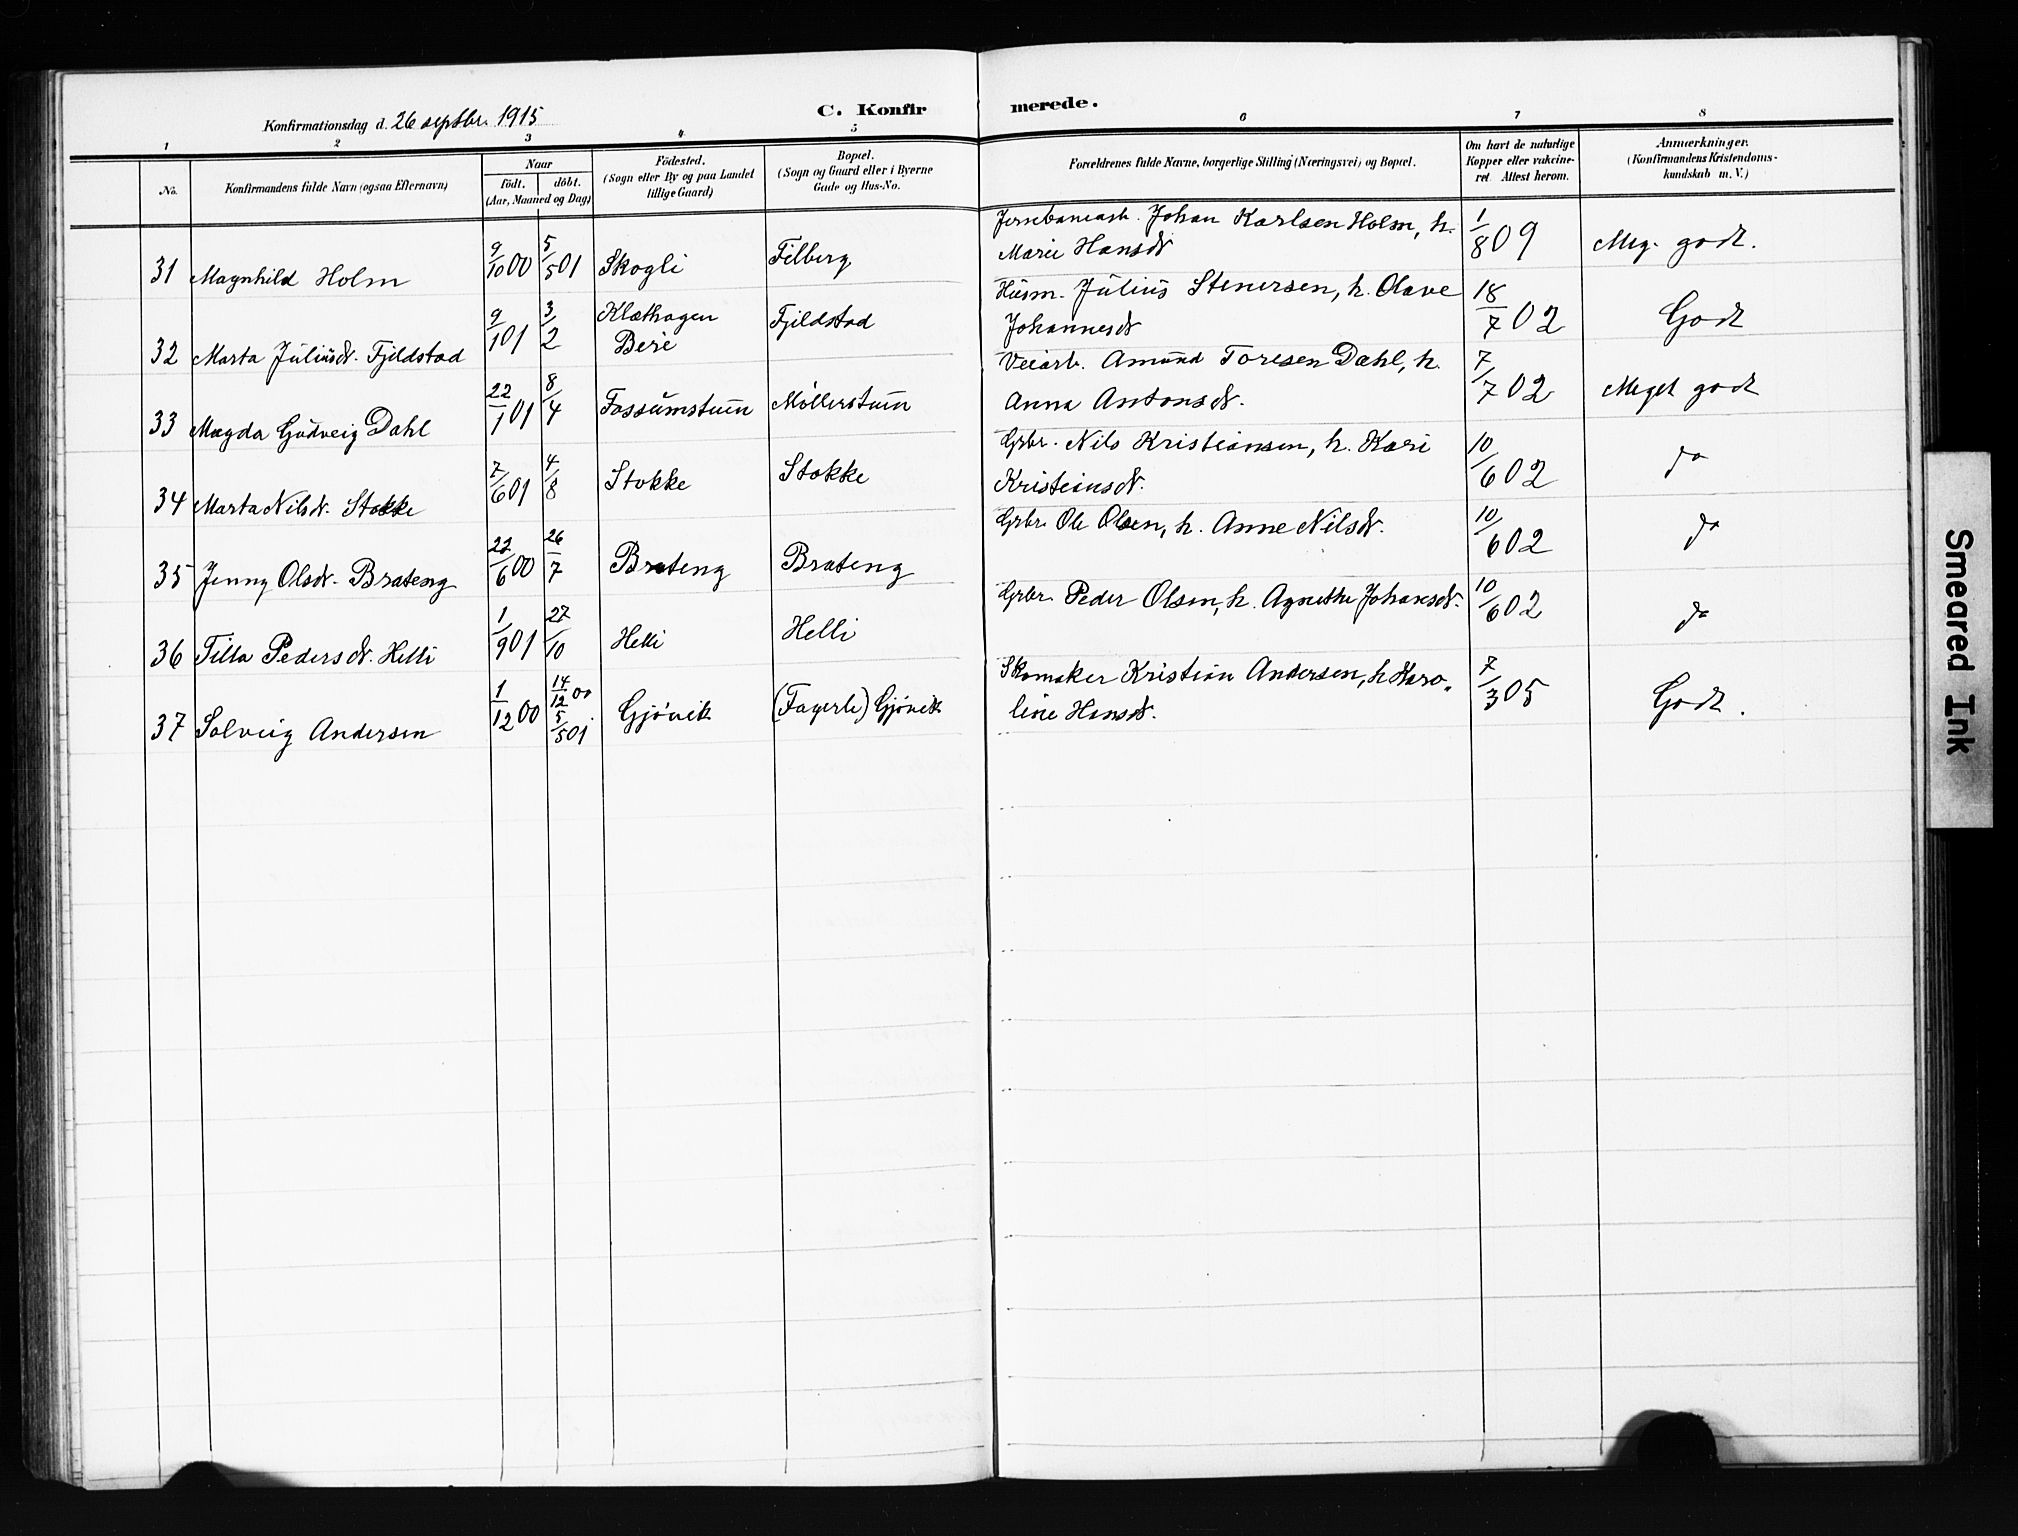 Konfirmationsdag d. 26 septbr. 1915
C. Konfirmerede.
1 2 3 4 5 6 7 8
No.
Konfirmandens fulde Navn (ogsaa Efternavn)
Naar
født. døbt.
(Aar, Maaned og Dag)
Fødested.
(Sogn eller By og paa Landet
tillige Gaard)
Bopæl.
(Sogn og Gaard eller i Byerne
Gade og Hus-No.
Forældrenes fulde Navne, borgerlige Stilling (Næringsvei) og Bopæl.
Om havt de naturlige
Kopper eller vakcine-
ret. Attest herom.
Anmærkninger.
(Konfirmandens Kristendoms-
kundskab m. V.)
31 Magnhild Holm 9/10 00 5/5 01 Skogli Filberg Jernbanearb. Johan Karlsen Holm, h.
Marie Hansdt 1/8 09 Meg. godt.
32 Marta Juliusdt. Fjildstad 9/1 01 3/2 Klæthagen
Beri Fjildstad Husm. Julius Stenersen, h. Olave
Johannesdt 18/7 02 Godt
33 Magda Gudveig Dahl 22/1 01 8/4 Fossumstuen Møllerstuen Veiarb. Amund Toresen Dahl, h.
Anna Antonsdt. 7/7 02 Meget godt
34 Marta Nilsdt. Stokke 7/6 01 4/8 Stokke Stokke Grbr. Nils Kristiansen, h. Kari
Kristiansdt. 10/6 02 do
35 Jenny Olsdt. Brateng 22/6 00 26/7 Brateng Brateng Grbr. Ole Olsen, h. Anne Nilsdt. 10/6 02 do
36 Tilla Pedersdt. Helli 1/9 01 27/10 Helli Helli Grbr. Peder Olsen, h. Agnethe Johansdt. 10/6 02 do
37 Solveig Andersen 1/12 00 14/12 00
5/5 01 Gjøvik (Fagerli) Gjøvik Skomaker Kristian Andersen, h Karo-
line Hansdt. 7/3 05 Godt.
Smeared Ink